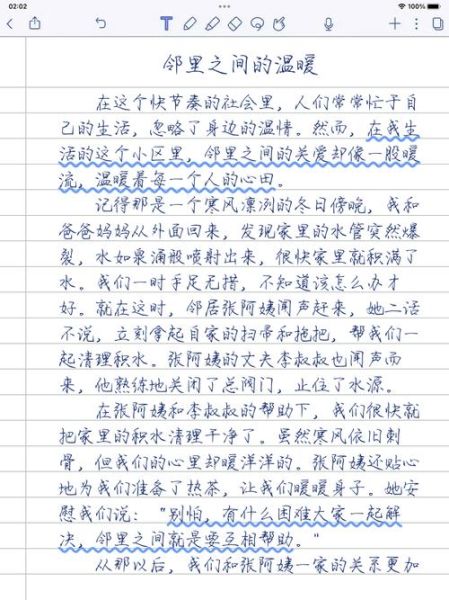 02:02
100%
T
邻里之间的温暖
在这个快节奏的社会里，人们常常忙于自
己的生活，忽略了身边的温情。然而，在我生
活的这个小区里，邻里之间的关爱却像一股暖
流，温暖着每一个人的心田。
记得那是一个寒风凛冽的冬日傍晚，我和
爸爸妈妈从外面回来，发现家里的水管突然爆
裂，水如泉涌般喷射出来，很快家里就积满了
水。我们一时手足无措，不知道该怎么办才
好。就在这时，邻居张阿姨闻声赶来，她二话
不说，立刻拿起自家的扫帚和拖把，帮我们一
起清理积水。张阿姨的丈夫李叔叔也闻声而
来，他熟练地关闭了总阀门，止住了水源。
在张阿姨和李叔叔的帮助下，我们很快就
把家里的积水清理干净了。虽然寒风依旧刺
骨，但我们的心里却暖洋洋的。张阿姨还贴心
地为我们准备了热茶，让我们暖暖身子。她安
慰我们说："别怕，有什么困难大家一起解
决，邻里之间就是要互相帮助。"
从那以后，我们和张阿姨一家的关系更加